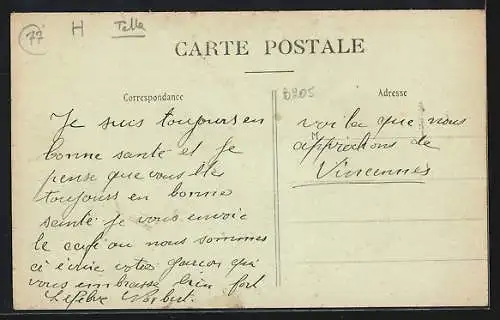 77
H
Tella
CARTE POSTALE
Correspondance
B205
Adresse
Je suis toujours en
bonne santé et je
pense que vous êtes
toujours en bonne
santé je vous envoie
le café ou nous sommes
votre garcon qui
vous embrasse bien fort
Lefebre Norbert
voila que nous
approchons de
Vincennes